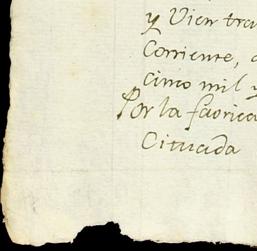 y Vien tra
Corriente, a
cinco mil y
Por la faorica
Cituada